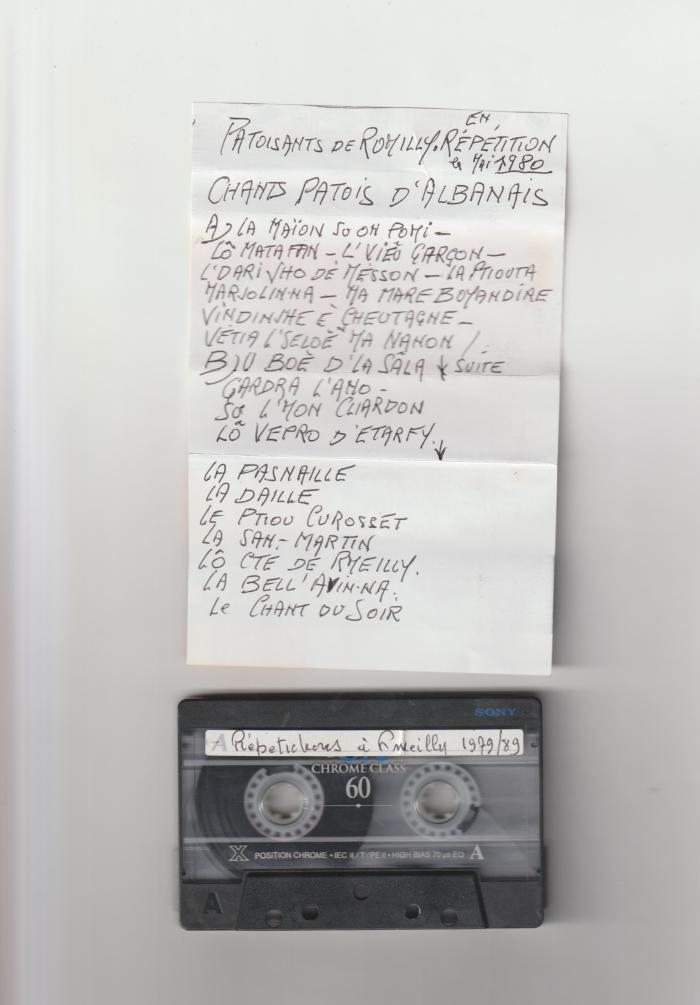 EN,
PATOISANTS DE RUMILLY. RÉPÉTITION
le Mai 1980
CHANTS PATOIS D'ALBANAIS
A) LA MAÏON SU ON POMI -
LÔ MATAFAN - L'VIEÛ GARÇON -
L'DARI JHO DÉ MÉSSON - LA PTIOUTA
MARJOLIN-NA - MA MARE BUYANDIRE
VINDINJHE È CHEUTAGNE -
VÉTIA L'SELOÈ MA NANON /
B) U BOÈ D'LA SÂLA ↓ SUITE
GARDRA L'ANO -
SO L'MON CLIARDON
LÔ VEPRO D'ETARFY. ↓
LA PASNAILLE
LA DAILLE
LE PTIOU CUROSSET
LA SAN-MARTIN
LÔ CTE DE RMEILLY.
LA BELL'AVIN-NA.
Le CHANT DU SOIR
SONY
A Répetichons à Rmeilly 1979/89
CHROME CLASS
60
X POSITION CHROME • IEC II / TYPE II • HIGH BIAS 70 µs EQ A
A